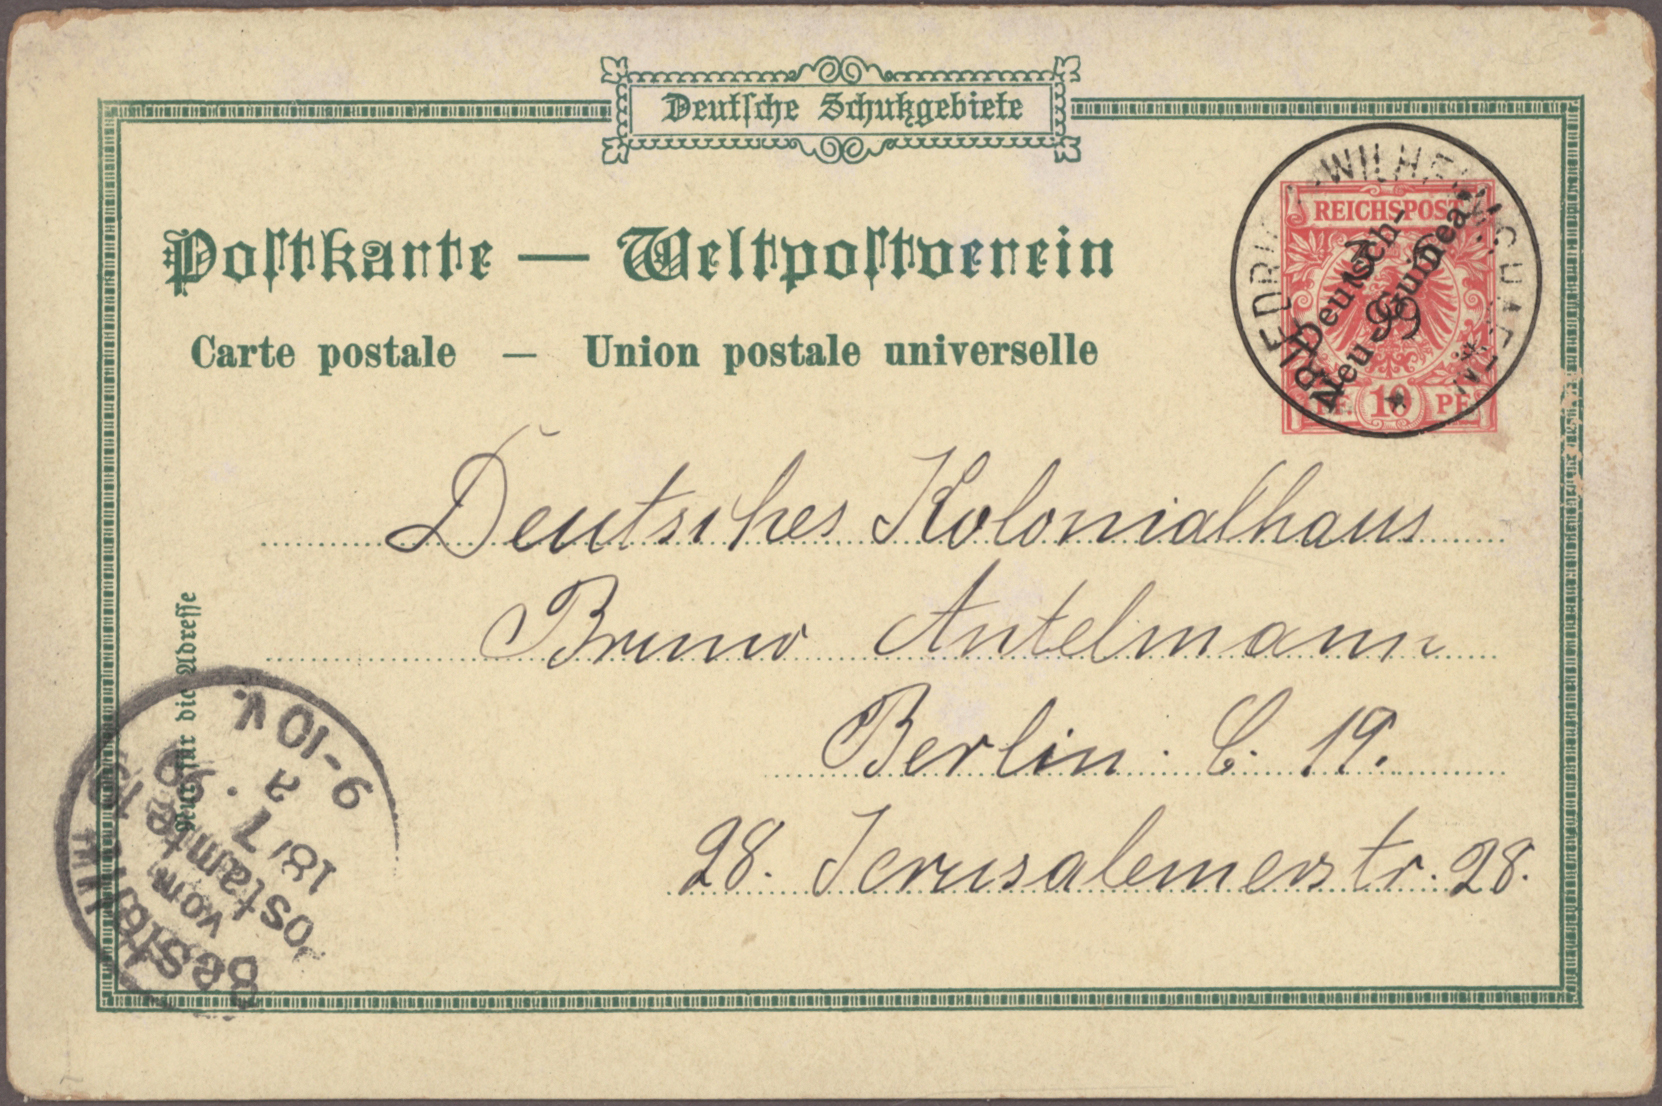 Deutſche Schutzgebiete
Poſtkarte — Weltpoſtverein
Carte postale — Union postale universelle
REICHSPOST
Deutsch-
Neu-Guinea
PF. 10 PF.
FRIEDRICH-WILHELMSHAFEN
3 6
99
Deutsches Kolonialhaus
Bruno Antelmann
Berlin. C. 19.
28. Jerusalemerstr. 28.
Nur für die Adreſſe
Bestellt
vom
Postamte 19
18/7. 99
a
9-10 V.